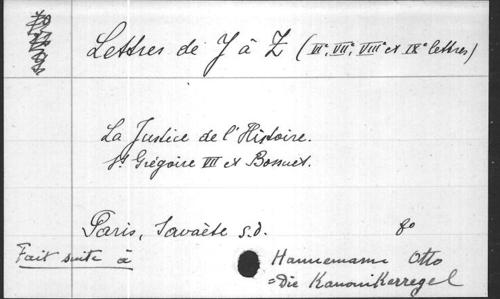 Lettres de J à Z (VIe, VIIe, VIIIe et IXe lettres)
La Justice de l'Histoire.
St Grégoire VII et Bossuet.
Paris, Savaète s.d. 8o
Fait suite à Hannemann Otto
=Die Kanonikerregel